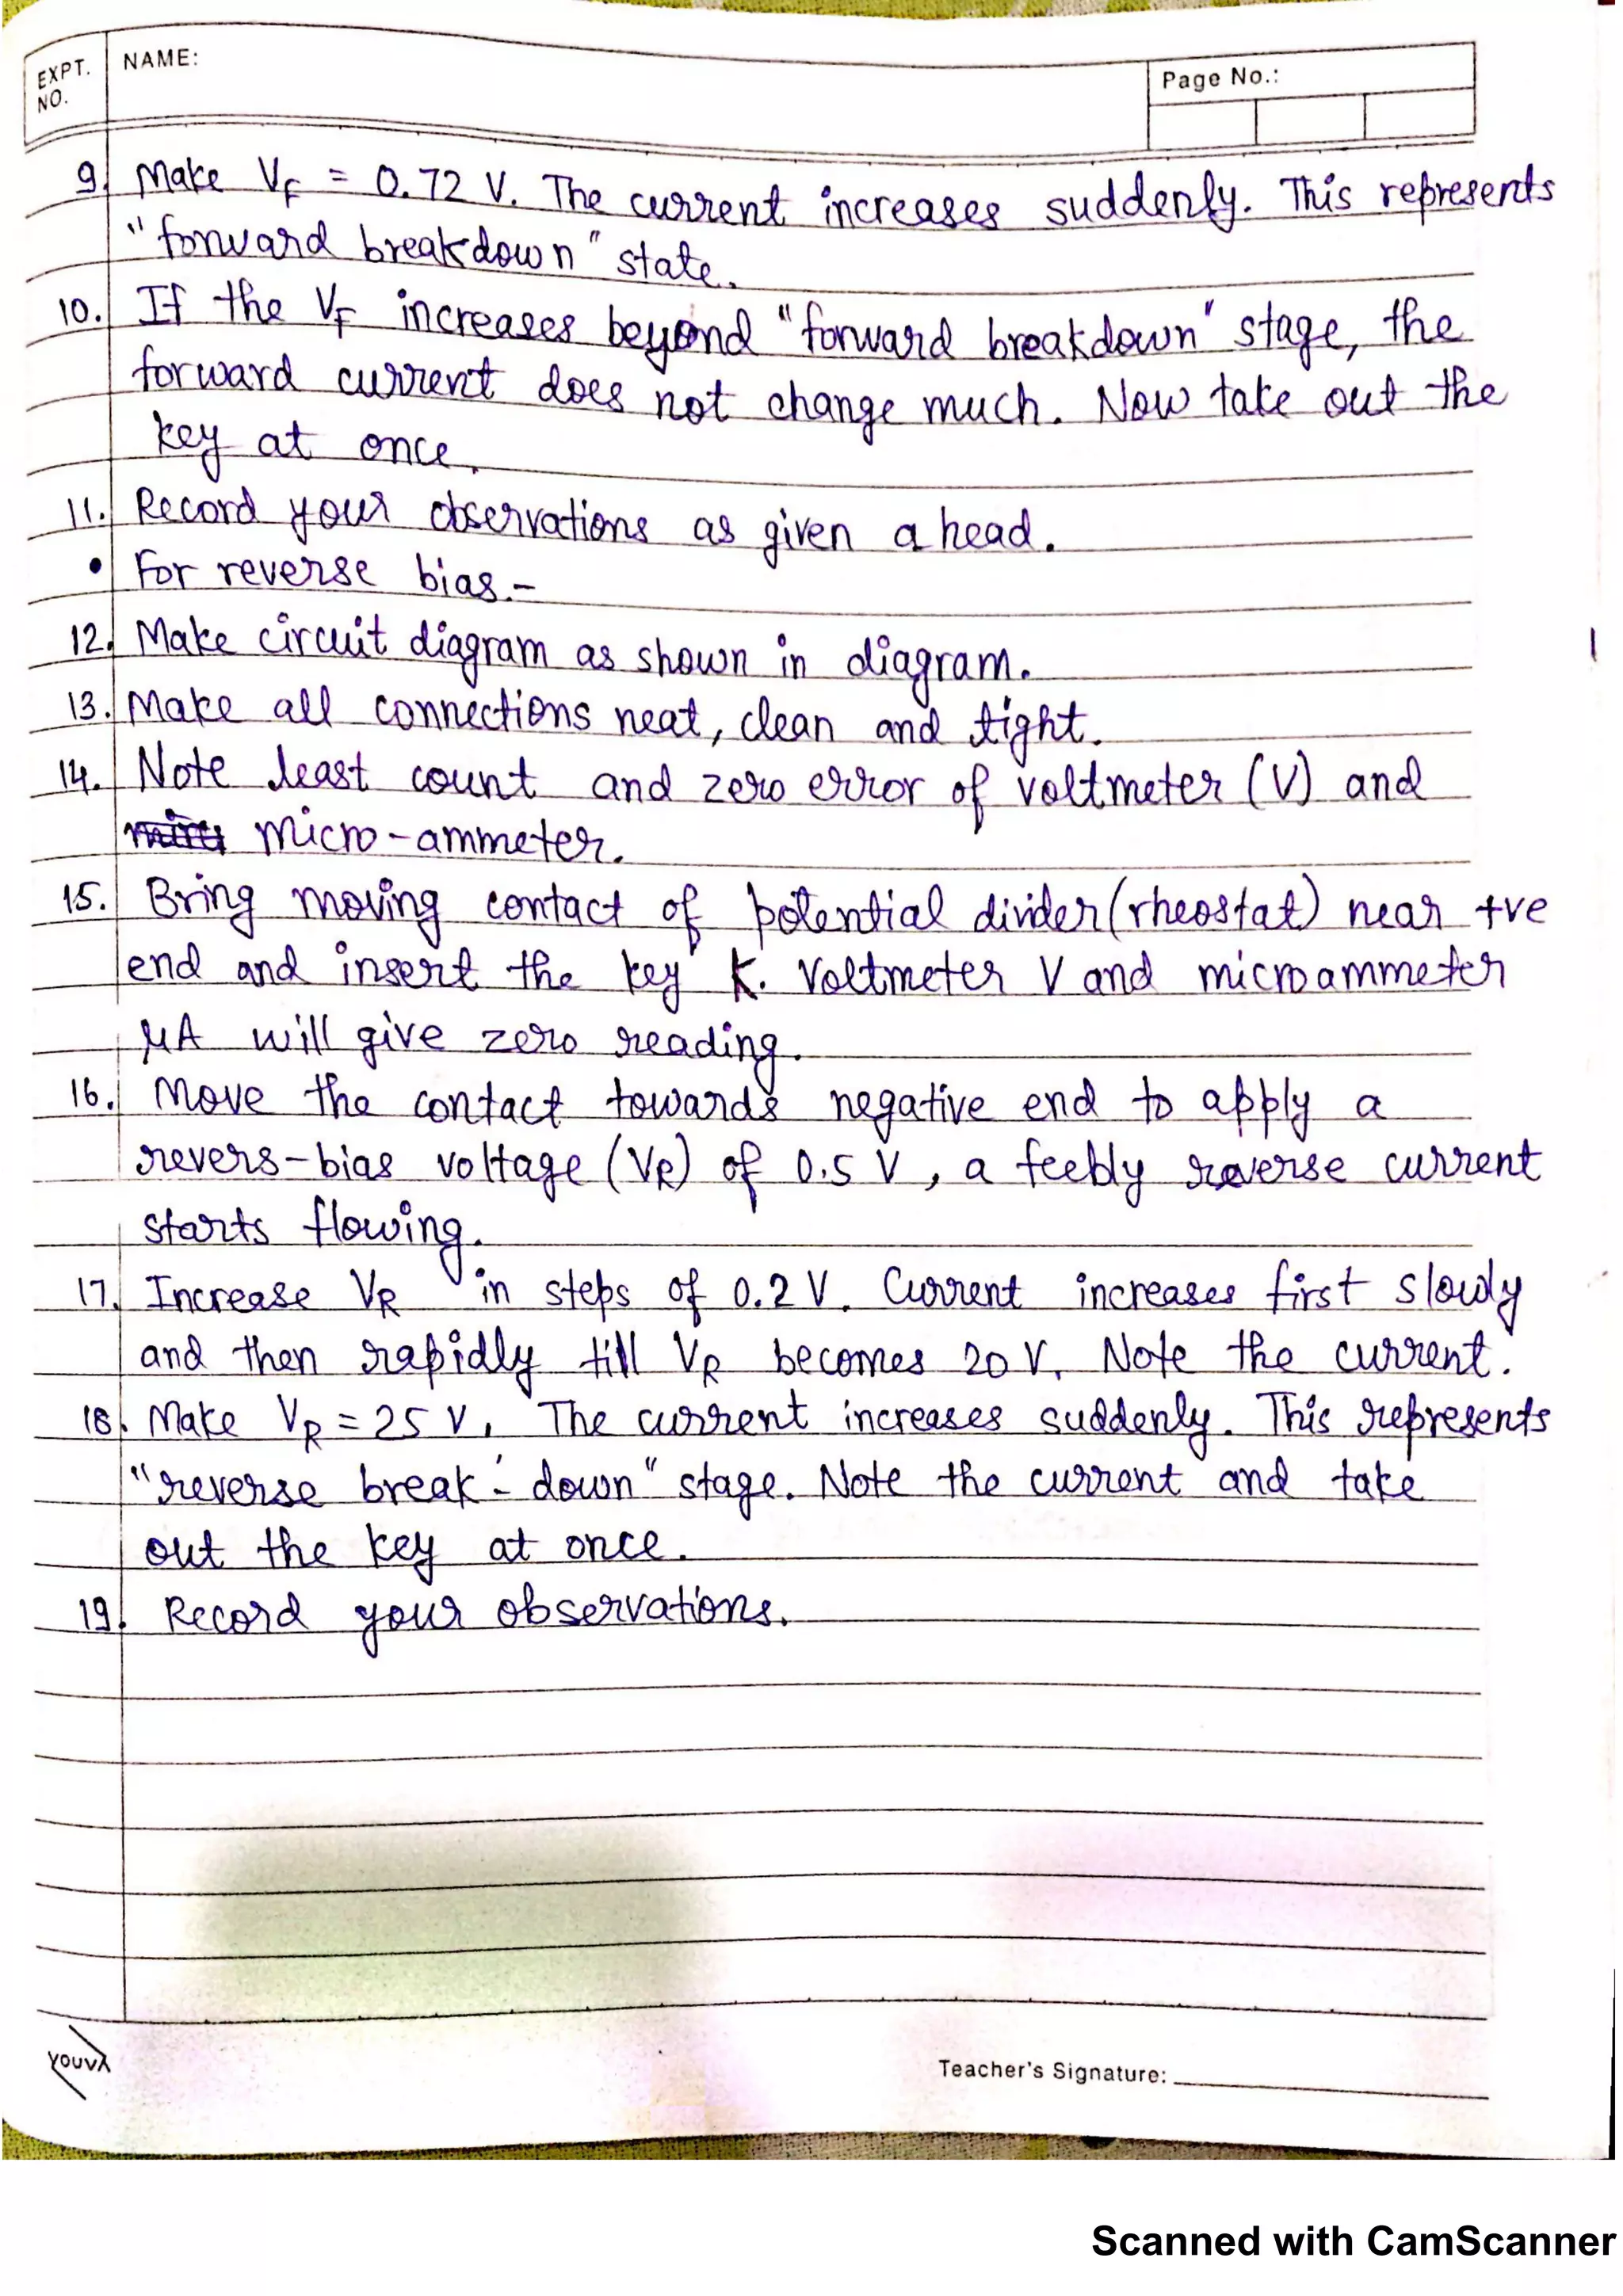 EXPT. NO.
NAME:
Page No.:
9. Make VF = 0.72 V. The current increases suddenly. This represents
"forward breakdown" state.
10. If the VF increases beyond "forward breakdown" stage, the
forward current does not change much. Now take out the
key at once.
11. Record your observations as given ahead.
• For reverse bias.-
12. Make circuit diagram as shown in diagram.
13. Make all connections neat, clean and tight.
14. Note least count and zero error of voltmeter (V) and
micro-ammeter.
15. Bring moving contact of potential divider (rheostat) near +ve
end and insert the key K. Voltmeter V and microammeter
μA will give zero reading.
16. Move the contact towards negative end to apply a
revers-bias voltage (VR) of 0.5 V, a feebly reverse current
starts flowing.
17. Increase VR in steps of 0.2 V. Current increases first slowly
and then rapidly till VR becomes 20 V. Note the current.
18. Make VR = 25 V. The current increases suddenly. This represents
"reverse break-down" stage. Note the current and take
out the key at once.
19. Record your observations.
YOUVA
Teacher's Signature:
Scanned with CamScanner